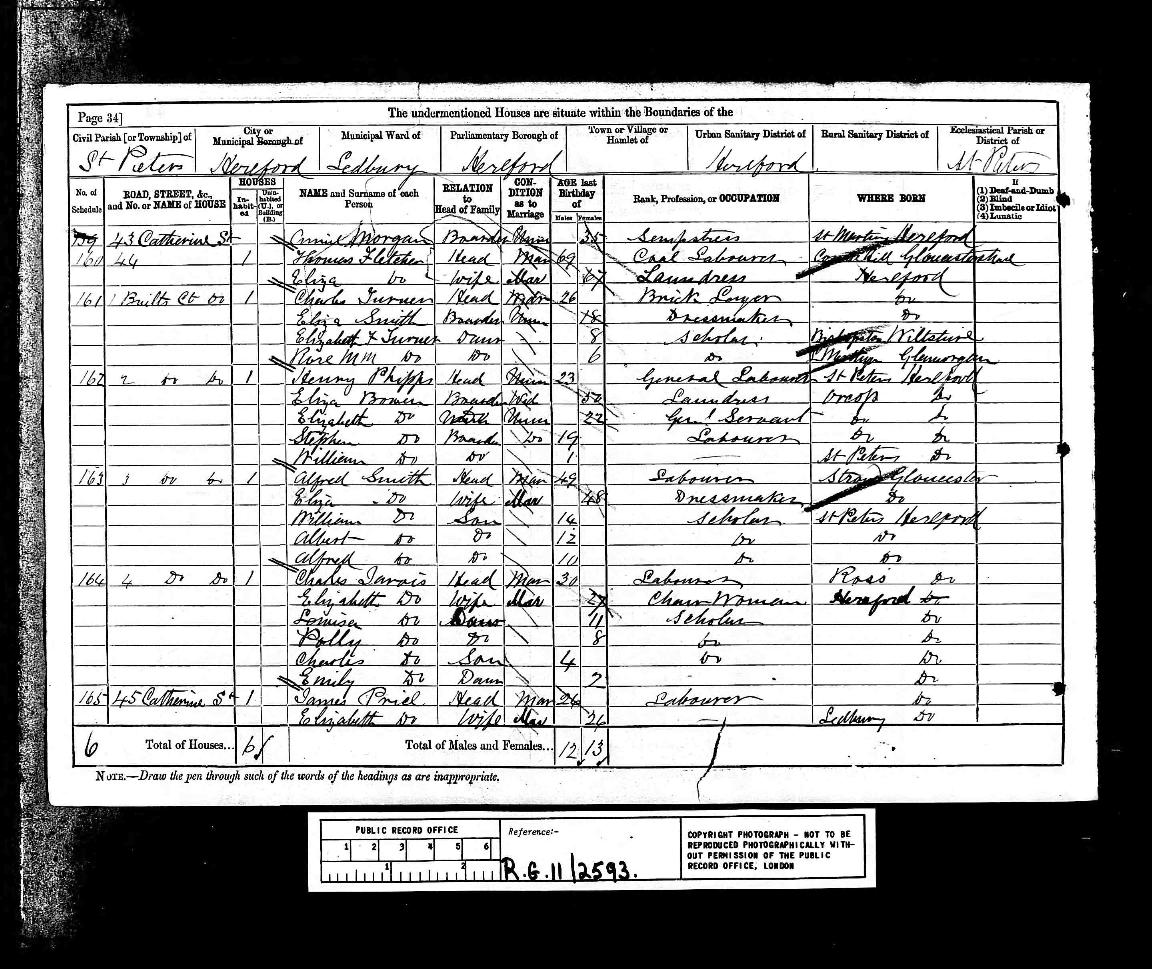 Page 34]
The undermentioned Houses are situate within the Boundaries of the
Civil Parish [or Township] of
City or Municipal Borough of
Municipal Ward of
Parliamentary Borough of
Town or Village or Hamlet of
Urban Sanitary District of
Rural Sanitary District of
Ecclesiastical Parish or District of
St Peters Hereford Ledbury Hereford Hereford St Peters
No. of Schedule
ROAD, STREET, &c., and No. or NAME of HOUSE
HOUSES
In-habit-ed
Unin-habited (U.), or Building (B.)
NAME and Surname of each Person
RELATION to Head of Family
CON-DITION as to Marriage
AGE last Birthday of
Males Females
Rank, Profession, or OCCUPATION
WHERE BORN
If
(1) Deaf-and-Dumb
(2) Blind
(3) Imbecile or Idiot
(4) Lunatic
159 43 Catherine St Annie Morgan Boarder Unm 35 Sempstress St Martins Hereford
160 44 1 Thomas Fletcher Head Mar 69 Coal Labourer Gloucestershire
Eliza Do Wife Mar 67 Laundress Hereford
161 1 Builts Ct Do 1 Charles Turner Head Widr 26 Brick Layer Do
Eliza Smith Boarder Unm 18 Dressmaker Do
Elizabeth F Turner Daur 8 Scholar Wiltshire
Rose M M Do Do 6 Do Merthyr Glamorgan
162 2 Do Do 1 Henry Phipps Head Unm 23 General Labourer St Peters Hereford
Eliza Bowen Boarder Wid 50 Laundress Orcop Do
Elizabeth Do Unm 22 Genl Servant Do Do
Stephen Do Boarder Do 19 Labourer Do Do
William Do Do 1 St Peters Do
163 3 Do Do 1 Alfred Smith Head Mar 49 Labourer Stroud Gloucester
Eliza Do Wife Mar 48 Dressmaker Do
William Do Son 14 Scholar St Peters Hereford
Albert Do Do 12 Do Do
Alfred Do Do 10 Do Do
164 4 Do Do 1 Charles Jarvis Head Mar 30 Labourer Ross Do
Elizabeth Do Wife Mar 27 Chair Woman Hereford Do
Louisa Do Daur 11 Scholar Do
Polly Do Do 8 Do Do
Charles Do Son 4 Do Do
Emily Do Daur 2 Do
165 45 Catherine St 1 James Price Head Mar 26 Labourer Do
Elizabeth Do Wife Mar 26 Ledbury Do
6 Total of Houses... 6 Total of Males and Females... 12 13
NOTE.—Draw the pen through such of the words of the headings as are inappropriate.
PUBLIC RECORD OFFICE
1 2 3 4 5 6
1 2
Reference:-
R.G. 11/2593.
COPYRIGHT PHOTOGRAPH - NOT TO BE
REPRODUCED PHOTOGRAPHICALLY WITH-
OUT PERMISSION OF THE PUBLIC
RECORD OFFICE, LONDON